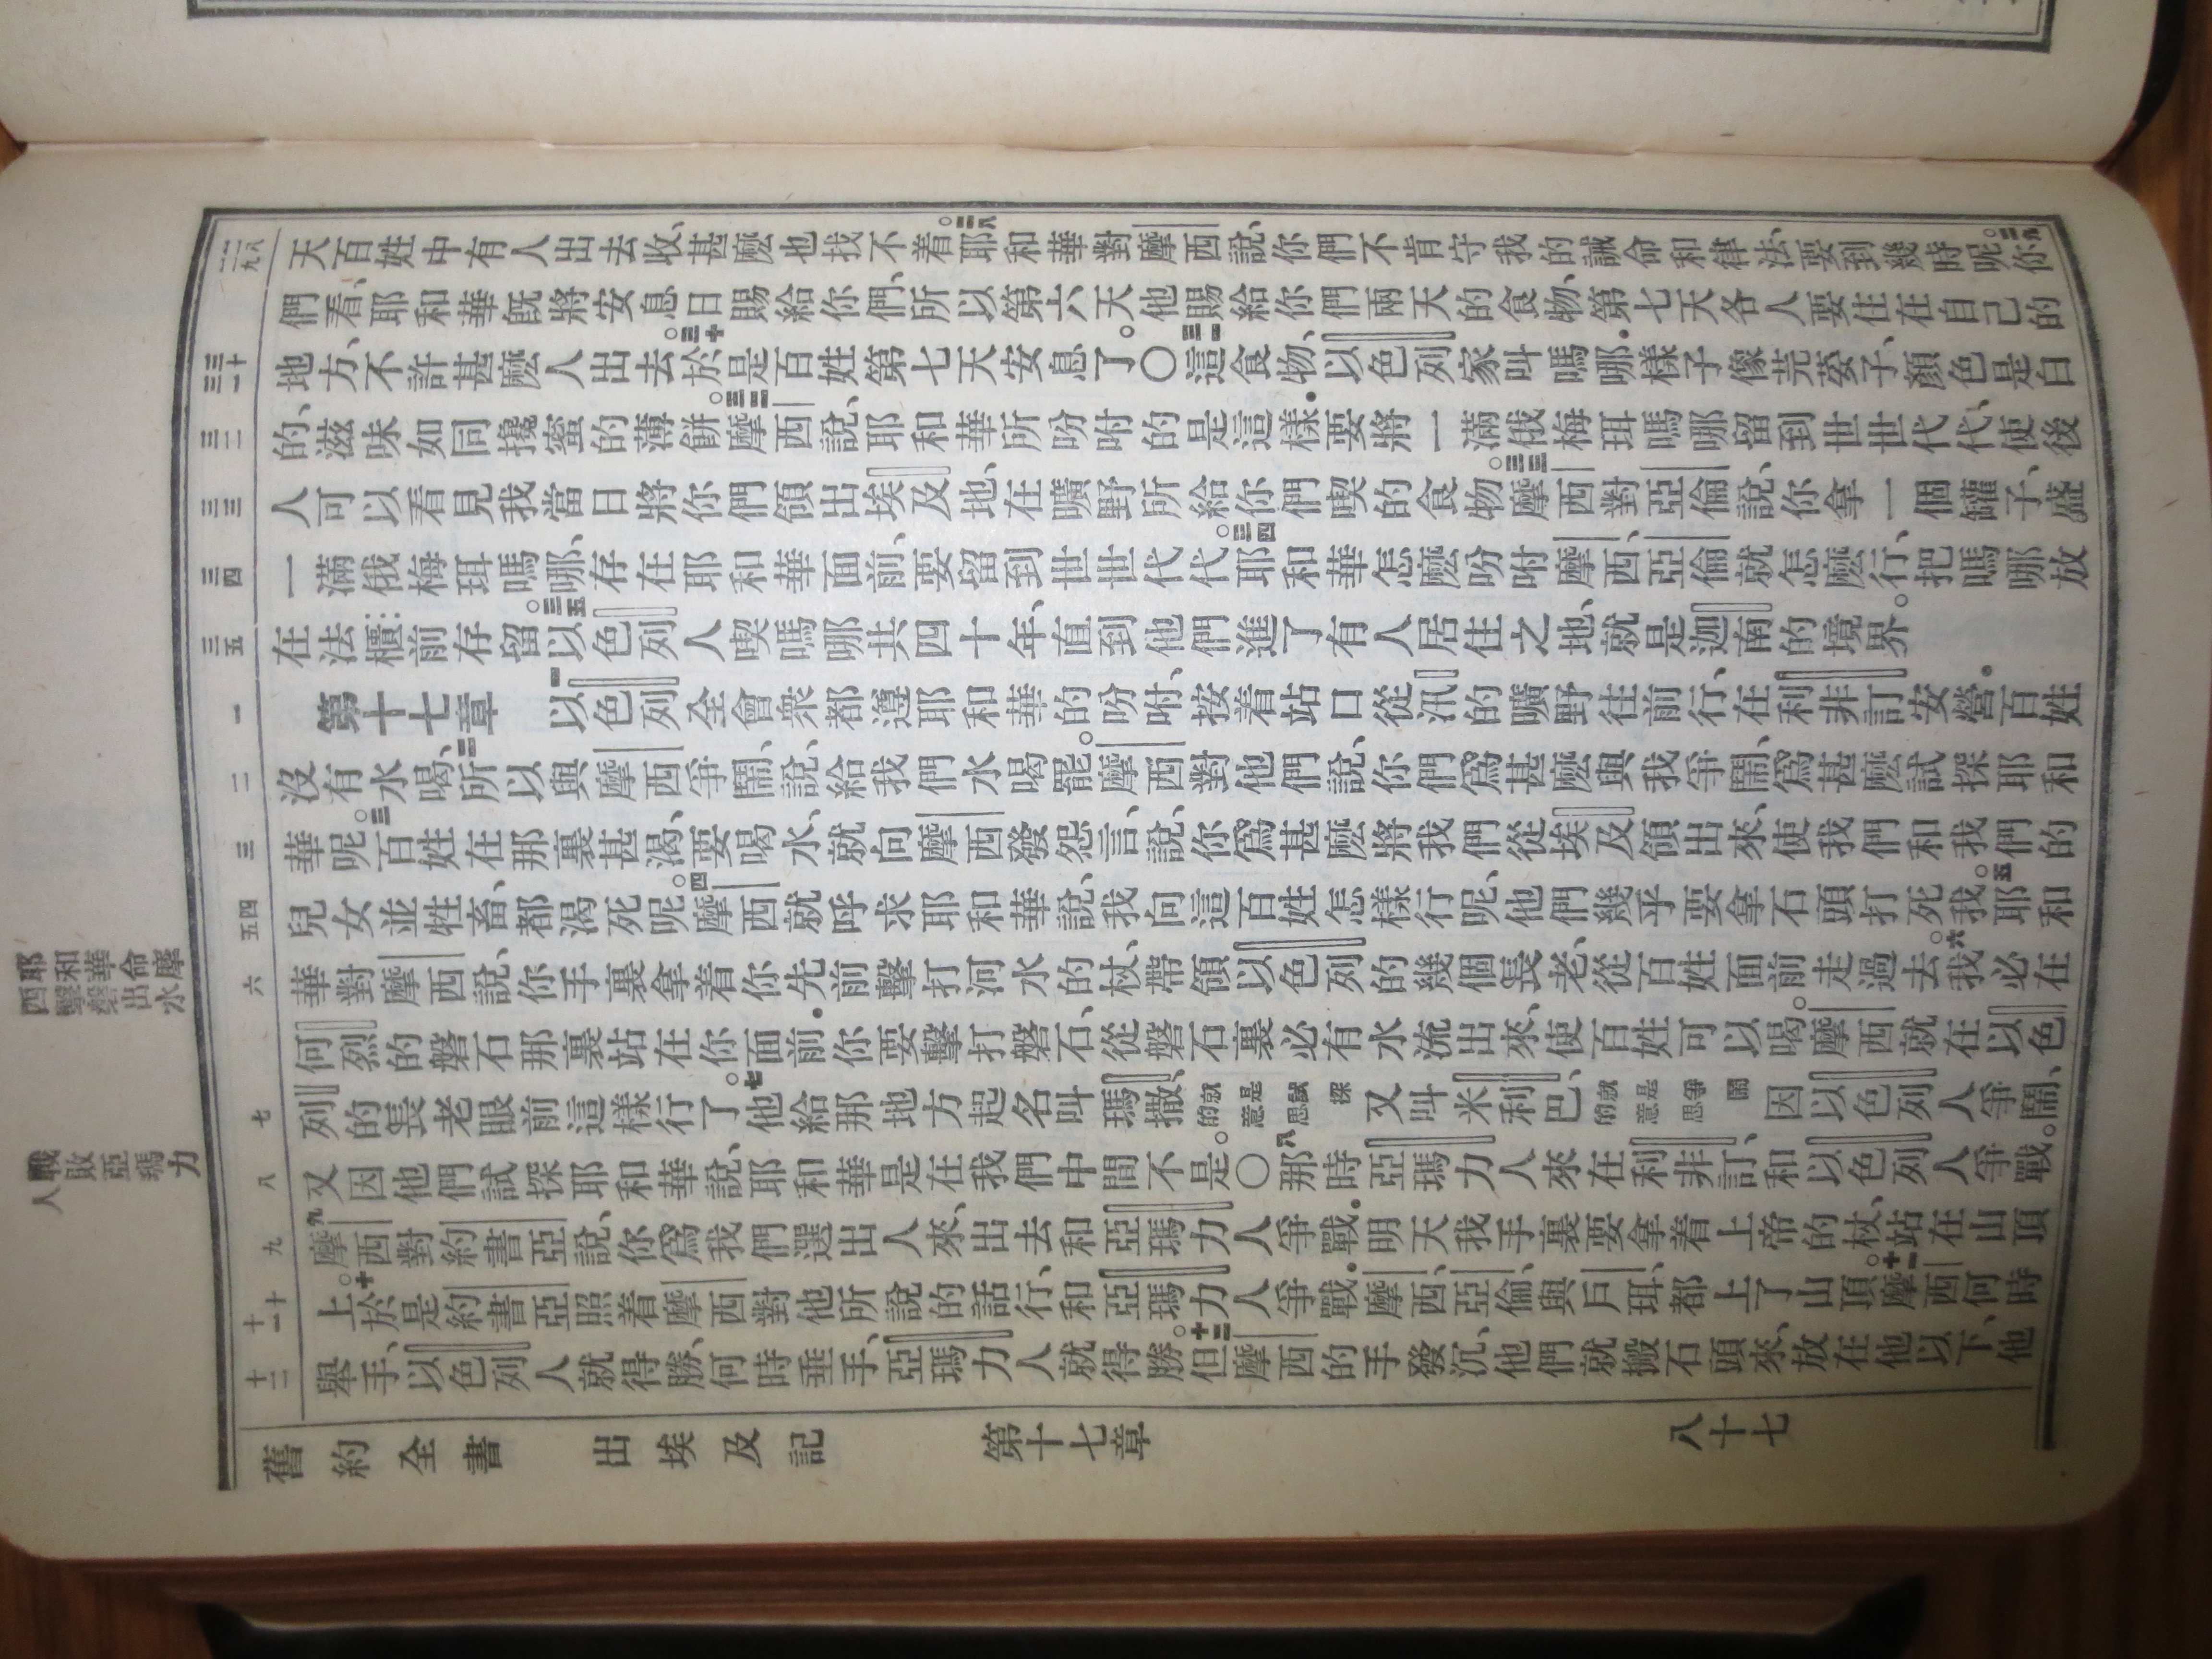 天百姓中有人出去收、甚麼也找不着。三八耶和華對摩西說、你們不肯守我的誡命和律法、要到幾時呢。三九你
們看、耶和華既將安息日賜給你們、所以第六天他賜給你們兩天的食物、第七天各人要住在自己的
地方、不許甚麼人出去。三十於是百姓第七天安息了。〇三一這食物、以色列家叫嗎哪.樣子像芫荽子、顏色是白
的、滋味如同攙蜜的薄餅。三二摩西說、耶和華所吩咐的是這樣.要將一滿俄梅珥嗎哪留到世世代代、使後
人可以看見我當日將你們領出埃及地、在曠野所給你們喫的食物。三三摩西對亞倫說、你拿一個罐子、盛
一滿俄梅珥嗎哪、存在耶和華面前、要留到世世代代。三四耶和華怎麼吩咐摩西、亞倫就怎麼行、把嗎哪放
在法櫃前存留。三五以色列人喫嗎哪共四十年、直到他們進了有人居住之地、就是迦南的境界。
第十七章 一以色列全會衆都遵耶和華的吩咐、按着站口從汛的曠野往前行、在利非訂安營.百姓
沒有水喝、二所以與摩西爭鬧、說、給我們水喝罷。摩西對他們說、你們爲甚麼與我爭鬧、爲甚麼試探耶和
華呢。三百姓在那裏甚渴、要喝水、就向摩西發怨言、說、你爲甚麼將我們從埃及領出來、使我們和我們的
兒女並牲畜、都渴死呢。四摩西就呼求耶和華說、我向這百姓怎樣行呢、他們幾乎要拿石頭打死我。五耶和
華對摩西說、你手裏拿着你先前擊打河水的杖、帶領以色列的幾個長老、從百姓面前走過去。六我必在
何烈的磐石那裏站在你面前.你要擊打磐石、從磐石裏必有水流出來、使百姓可以喝。摩西就在以色
列的長老眼前這樣行了。七他給那地方起名叫瑪撒、就是試探的意思又叫米利巴、就是爭鬧的意思因以色列人爭鬧、
又因他們試探耶和華說、耶和華是在我們中間不是。〇八那時亞瑪力人來在利非訂、和以色列人爭戰。
九摩西對約書亞說、你爲我們選出人來、出去和亞瑪力人爭戰.明天我手裏要拿着上帝的杖、站在山頂
上。十於是約書亞照着摩西對他所說的話行、和亞瑪力人爭戰.摩西、亞倫、與戶珥、都上了山頂。十一摩西何時
舉手、以色列人就得勝、何時垂手、亞瑪力人就得勝。十二但摩西的手發沉、他們就搬石頭來、放在他以下、他
舊約全書 出埃及記 第十七章 八十七
三十
三一
三二
三三
三四
三五
一
二
三
四
五
六
七
八
九
十
十一
十二
耶和華命摩
西擊磐出水
戰敗亞瑪力
人